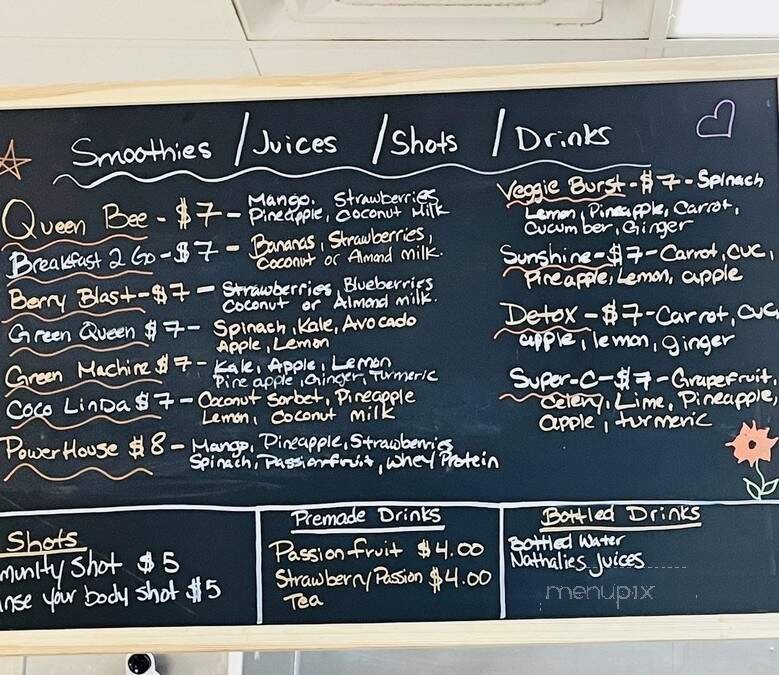 Smoothies / Juices / Shots / Drinks
Queen Bee - $7 - Mango. Strawberries
Pineapple, Coconut Milk
Breakfast 2 Go - $7 - Bananas, Strawberries,
Coconut or Almond milk.
Berry Blast - $7 - Strawberries, Blueberries
Coconut or Almond milk.
Green Queen $7 - Spinach, Kale, Avocado
Apple, Lemon
Green Machine $7 - Kale, Apple, Lemon
Pineapple, Ginger, Turmeric
Coco Linda $7 - Coconut Sorbet, Pineapple
Lemon, Coconut milk
PowerHouse $8 - Mango, Pineapple, Strawberries
Spinach, Passionfruit, Whey Protein
Veggie Burst - $7 - Spinach
Lemon, Pineapple, Carrot,
Cucumber, Ginger
Sunshine - $7 - Carrot, cuc,
Pineapple, Lemon, apple
Detox - $7 - Carrot, cuc
apple, lemon, ginger
Super-C - $7 - Grapefruit,
Celery, Lime, Pineapple,
apple, turmeric
Shots
munity Shot $5
nse your body shot $5
Premade Drinks
Passion-fruit $4.00
Strawberry/Passion $4.00
Tea
Bottled Drinks
Bottled Water
Nathalies Juices
menupix